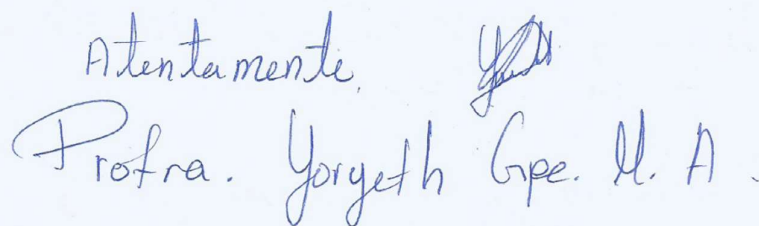 Atentamente.
Profra. Yoryeth Gpe. M. A.